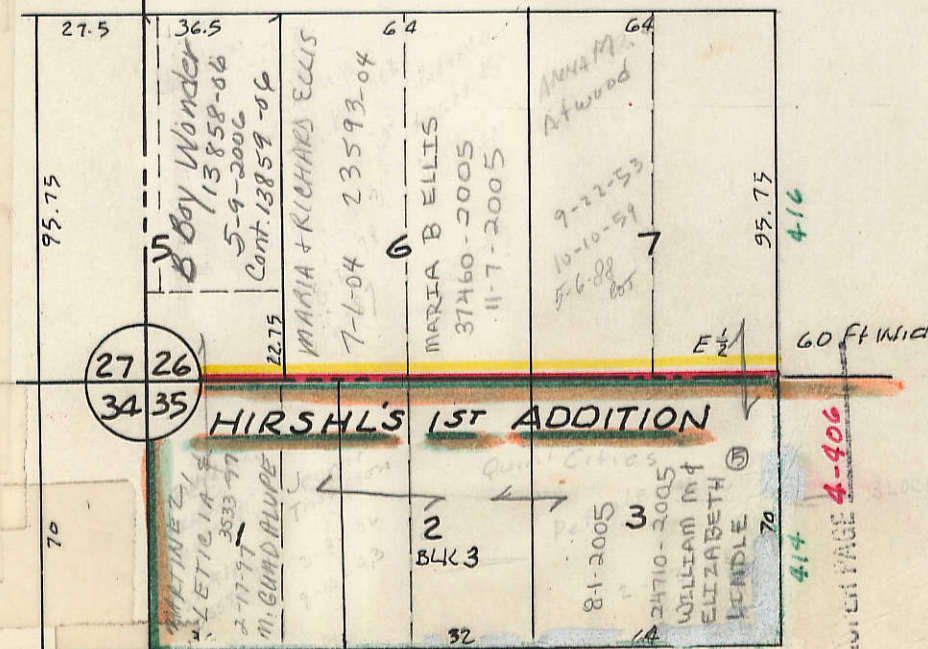 27.5
36.5
64
64
95.75
5
B Boy Wonder
13858-06
5-9-2006
Cont. 13859-06
22.75
MARIA & RICHARD ELLIS
7-1-04 23593-04
6
MARIA B ELLIS
37460-2005
11-7-2005
ANNA M.
Atwood
9-22-53
10-10-59
5-6-88
7
95.75
416
E ½
60 Ft Wid
27 26
34 35
HIRSHL'S 1ST ADDITION
70
MARTINEZ
LETICIA &
3533-97
2-17-97
M. GUADALUPE
1
2
BLK 3
32
Quint Cities
8-1-2005
3
24710-2005
WILLIAM M &
ELIZABETH
KINDLE
5
70
414
PAGE 4-406